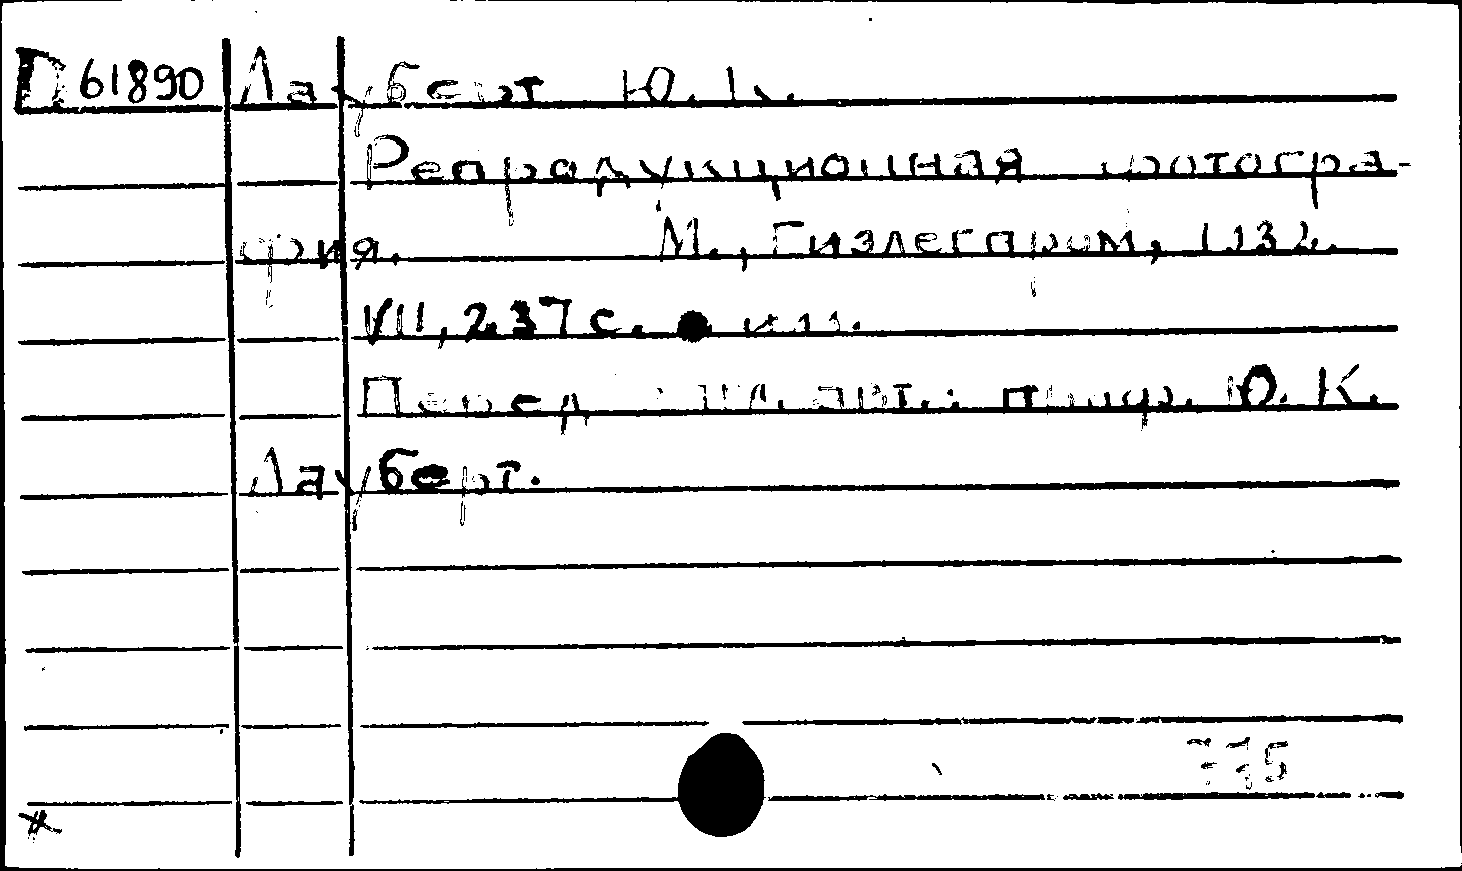 D 61890 Лауберт Ю. К.
Репродукционная фотогра-
фия. М., Гизлегпром, 1932.
VII, 237 с. илл.
Перед загл. авт.: проф. Ю. К.
Лауберт.
775